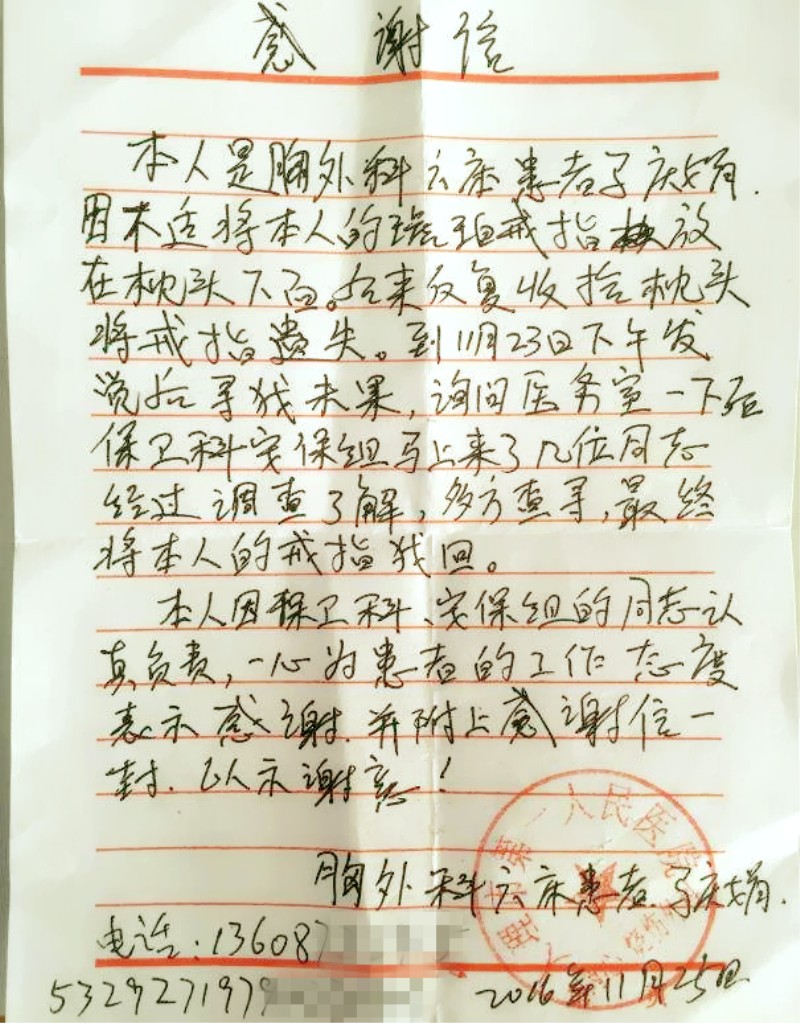 感谢信
本人是胸外科六床患者子庆娟.
因不适将本人的琥珀戒指放
在枕头下面。后来反复收拾枕头
将戒指遗失。到11月23日下午发
觉后寻找未果,询问医务室一下班
保卫科安保组马上来了几位同志
经过调查了解,多方查寻,最终
将本人的戒指找回。
本人因保卫科、安保组的同志认
真负责,一心为患者的工作态度
表示感谢.并附上感谢信一
封.以示谢意!
第一人民医院
胸外科六床患者.子庆娟.
电话:136087
5329271979
2016年11月25日